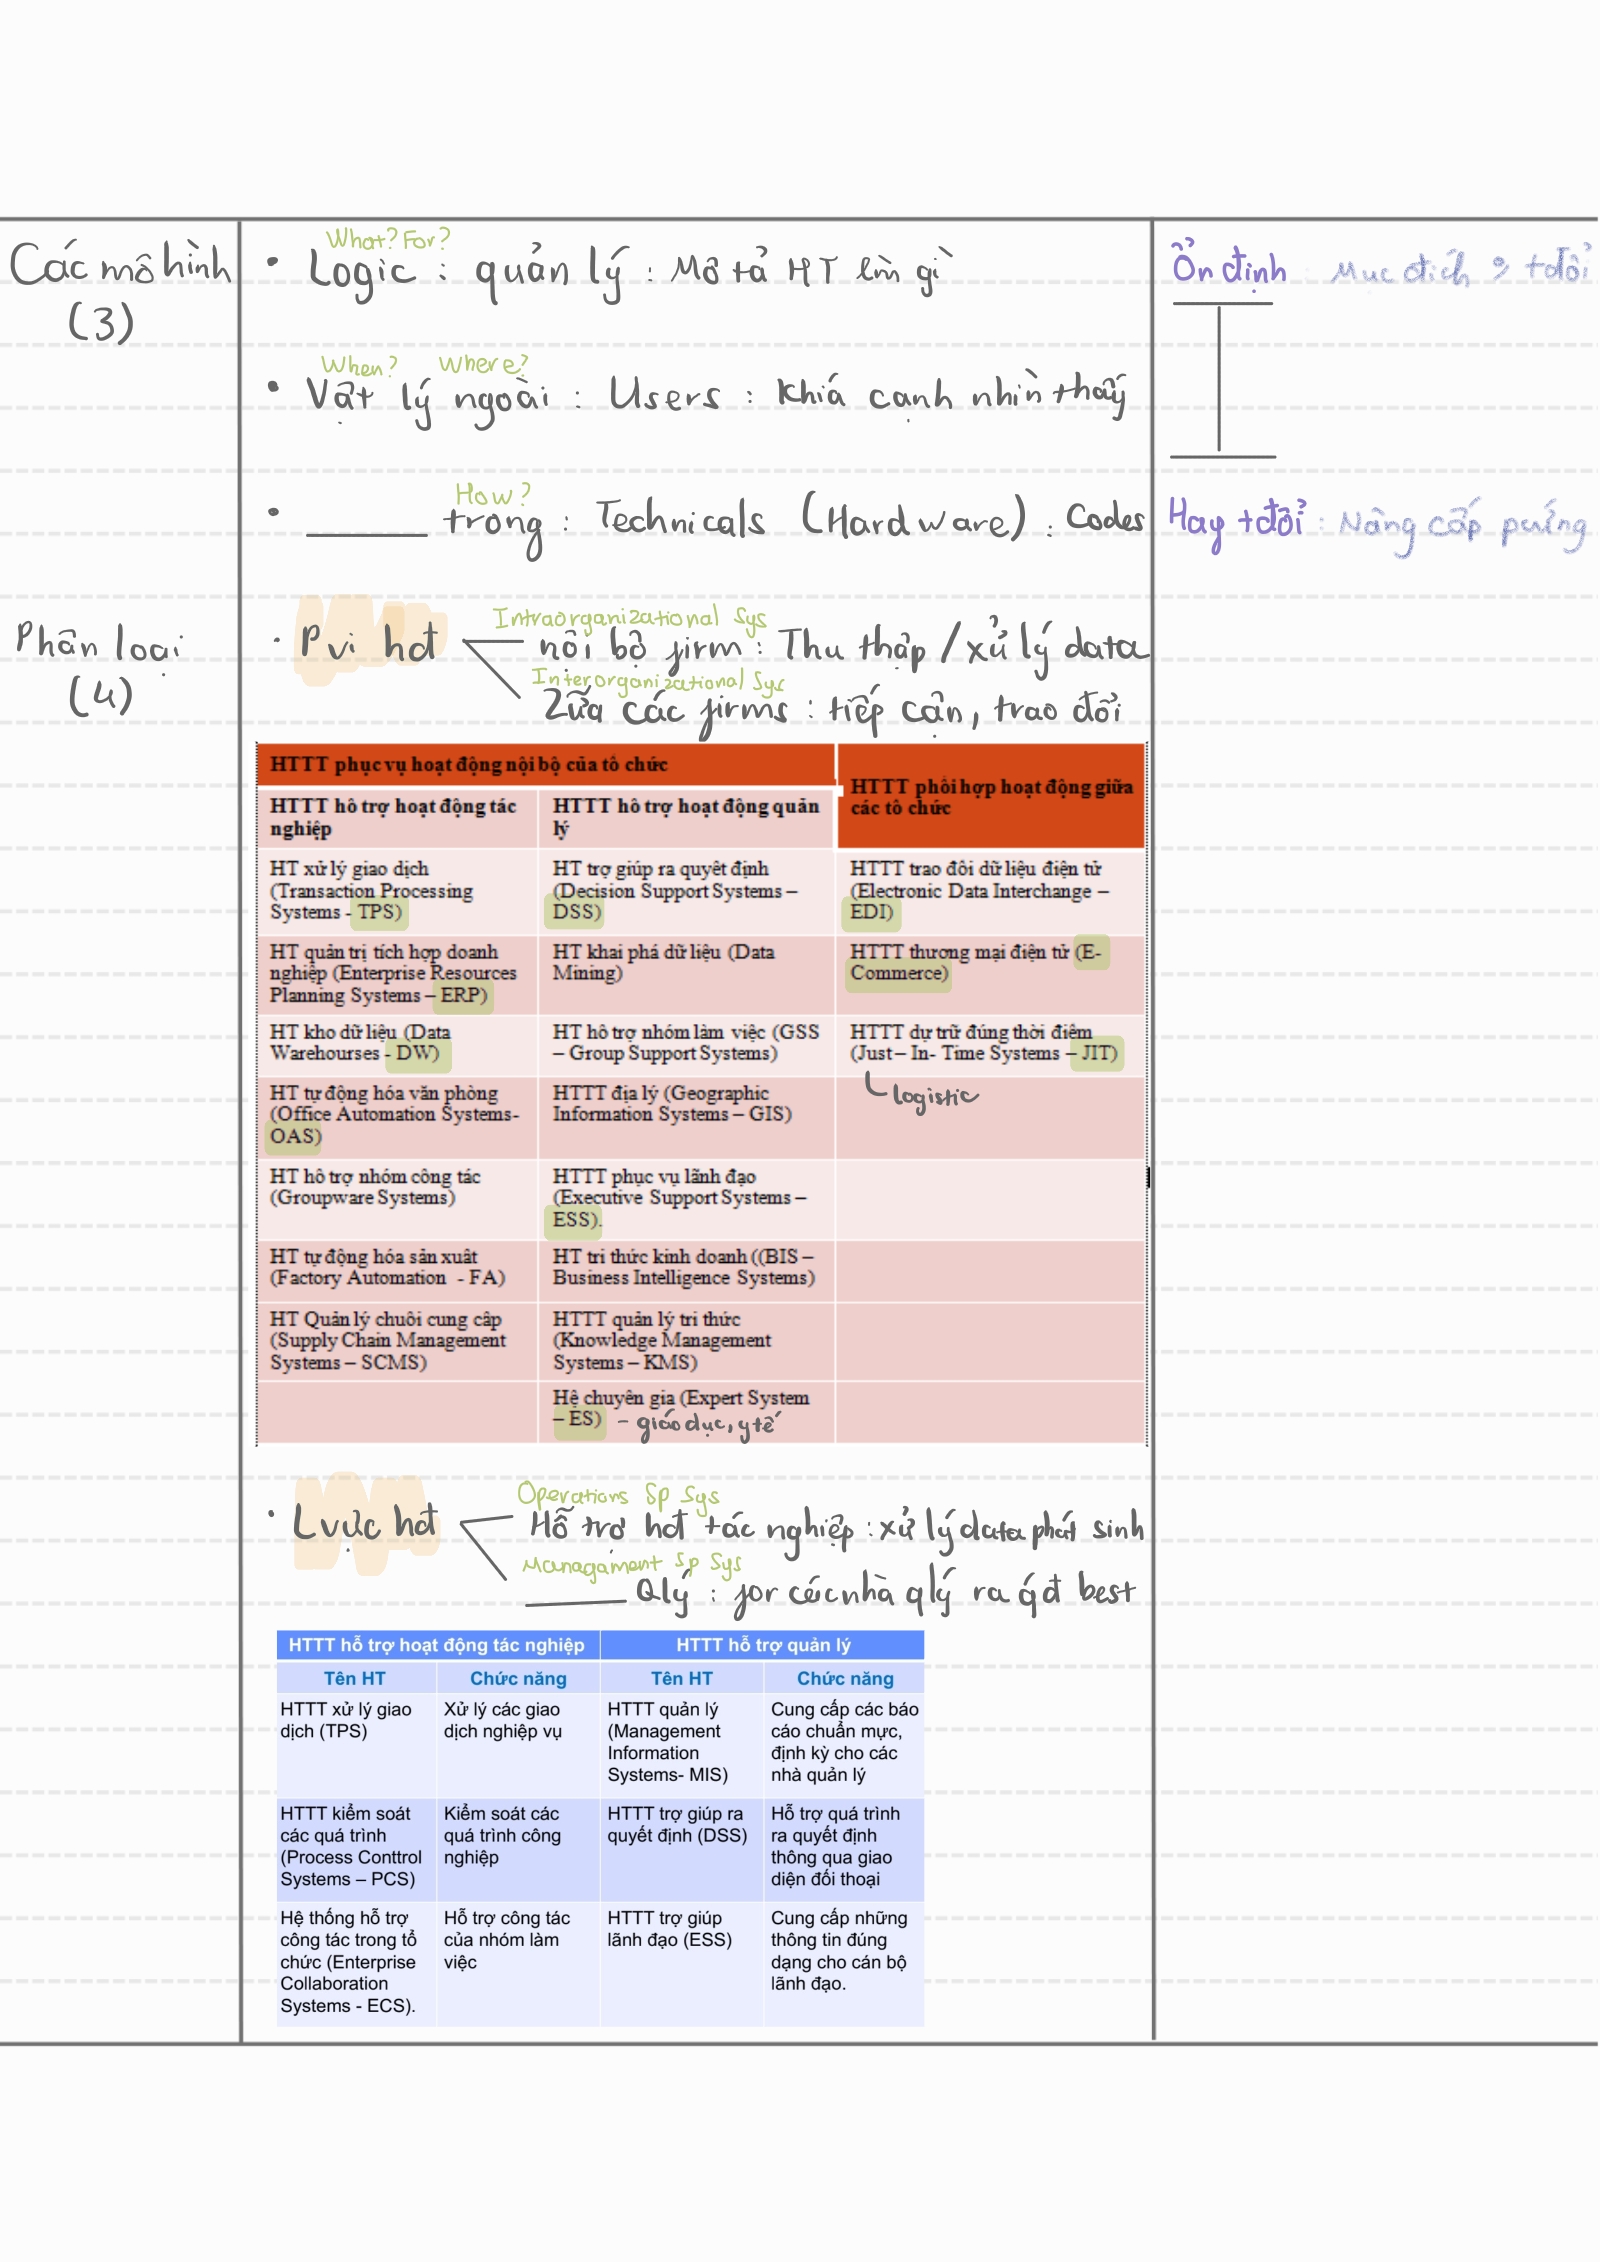 Các mô hình
(3)
What? For?
• Logic : quản lý : Mô tả HT làm gì
Ổn định : Mục đích 0 tđổi
When? Where?
• Vật lý ngoài : Users : Khía cạnh nhìn thấy
How?
• ______ trong : Technicals (Hardware) : Codes
Hay tđổi : Nâng cấp pứng
Phân loại
(4)
• Pvi hđ
Intraorganizational Sys
nội bộ firm : Thu thập / xử lý data
Interorganizational Sys
Zữa các firms : tiếp cận, trao đổi
HTTT phục vụ hoạt động nội bộ của tổ chức
HTTT phối hợp hoạt động giữa
các tổ chức
HTTT hỗ trợ hoạt động tác
nghiệp
HTTT hỗ trợ hoạt động quản
lý
HT xử lý giao dịch
(Transaction Processing
Systems - TPS)
HT trợ giúp ra quyết định
(Decision Support Systems –
DSS)
HTTT trao đổi dữ liệu điện tử
(Electronic Data Interchange –
EDI)
HT quản trị tích hợp doanh
nghiệp (Enterprise Resources
Planning Systems – ERP)
HT khai phá dữ liệu (Data
Mining)
HTTT thương mại điện tử (E-
Commerce)
HT kho dữ liệu (Data
Warehourses - DW)
HT hỗ trợ nhóm làm việc (GSS
– Group Support Systems)
HTTT dự trữ đúng thời điểm
(Just – In- Time Systems – JIT)
logistic
HT tự động hóa văn phòng
(Office Automation Systems-
OAS)
HTTT địa lý (Geographic
Information Systems – GIS)
HT hỗ trợ nhóm công tác
(Groupware Systems)
HTTT phục vụ lãnh đạo
(Executive Support Systems –
ESS).
HT tự động hóa sản xuất
(Factory Automation - FA)
HT tri thức kinh doanh ((BIS –
Business Intelligence Systems)
HT Quản lý chuỗi cung cấp
(Supply Chain Management
Systems – SCMS)
HTTT quản lý tri thức
(Knowledge Management
Systems – KMS)
Hệ chuyên gia (Expert System
– ES) - giáo dục, y tế
• Lvực hđ
Operations Sp Sys
Hỗ trợ hđ tác nghiệp : xử lý data phát sinh
Managament Sp Sys
______ Qlý : for các nhà qlý ra qđ best
HTTT hỗ trợ hoạt động tác nghiệp
HTTT hỗ trợ quản lý
Tên HT
Chức năng
Tên HT
Chức năng
HTTT xử lý giao
dịch (TPS)
Xử lý các giao
dịch nghiệp vụ
HTTT quản lý
(Management
Information
Systems- MIS)
Cung cấp các báo
cáo chuẩn mực,
định kỳ cho các
nhà quản lý
HTTT kiểm soát
các quá trình
(Process Conttrol
Systems – PCS)
Kiểm soát các
quá trình công
nghiệp
HTTT trợ giúp ra
quyết định (DSS)
Hỗ trợ quá trình
ra quyết định
thông qua giao
diện đối thoại
Hệ thống hỗ trợ
công tác trong tổ
chức (Enterprise
Collaboration
Systems - ECS).
Hỗ trợ công tác
của nhóm làm
việc
HTTT trợ giúp
lãnh đạo (ESS)
Cung cấp những
thông tin đúng
dạng cho cán bộ
lãnh đạo.